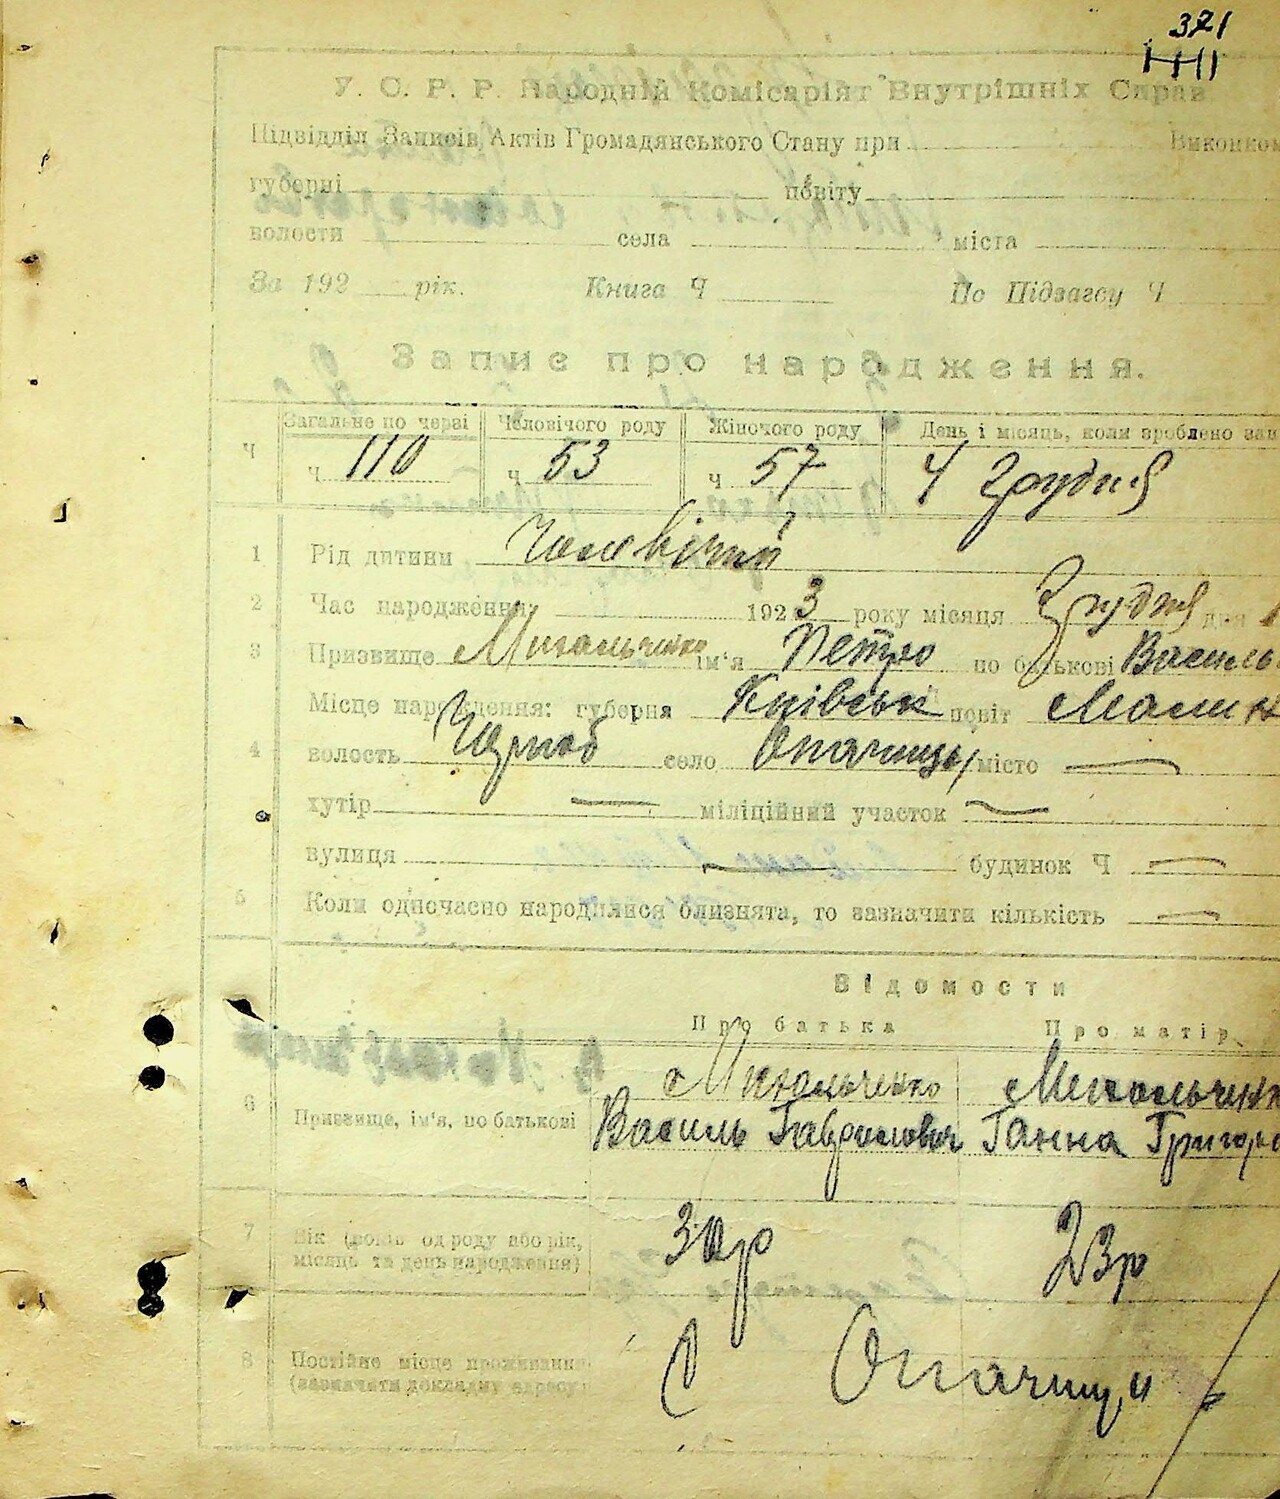 371
У. С. Р. Р. Народній Комісаріят Внутрішніх Справ
Підвідділ Записів Актів Громадянського Стану при Виконком
губерні повіту
волости села міста
За 192 рік. Книга Ч По Підзагсу Ч
Запис про народження.
Ч Загальне по черзі Чоловічого роду Жіночого роду День і місяць, коли зроблено зап
Ч 110 Ч 53 Ч 57 4 Грудня
1 Рід дитини Чоловічий
2 Час народження: 1923 року місяця Грудня дня 1
3 Призвище Микольченко ім'я Петро по батькові Василь
Місце народження: губерня Київськ повіт Малин
4 волость Чорноб село Опачиці місто —
хутір — міліційний участок —
вулиця — будинок Ч —
5 Коли одночасно народилися близнята, то зазначити кількість —
Відомости
Про батька Про матір
Микольченко Микольченк
6 Призвище, ім'я, по батькові Василь Гаврилович Ганна Григор
7 Вік (років од роду або рік, 30 р 23 р
місяць та день народження)
8 Постійне місце проживання С Опачиці
(зазначити докладну адресу)